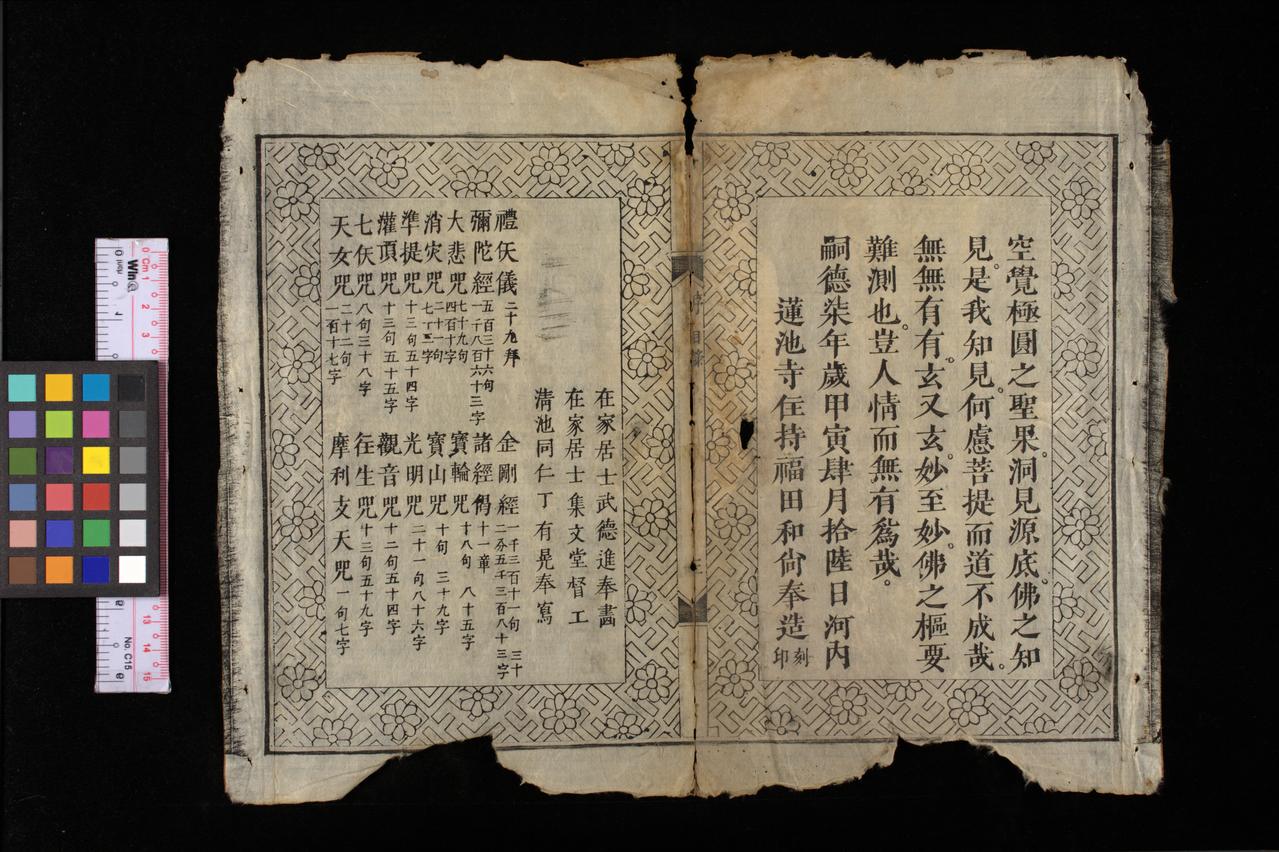 空覺極圓之聖果。洞見源底。佛之知
見。是我知見。何慮菩提而道不成哉。
無無有有。玄又玄。妙至妙。佛之樞要
難測也。豈人情而無有爲哉。
嗣德柒年歲甲寅肆月拾陸日河内
蓮池寺住持福田和尙奉造刻印
在家居士武德進奉畵
在家居士集文堂督工
淸池同仁丁有晃奉寫
禮仸儀二十九拜
金剛經一千三百十一句 三十二分五千三百八十三字
彌陀經五百三十六句一千八百六十三字
諸經偈十一章
大悲咒七十九句四百十字
寶輪咒十八句 八十五字
消灾咒二十一句七十三字
寶山咒十句 三十九字
準提咒十三句五十四字
光明咒二十一句八十六字
灌頂咒十三句五十五字
觀音咒十二句五十四字
七仸咒八句三十八字
往生咒十三句五十九字
天女咒二十二句一百十七字
摩利支天咒一句七字
Cm 1 2 3
13 14 15
No. C15